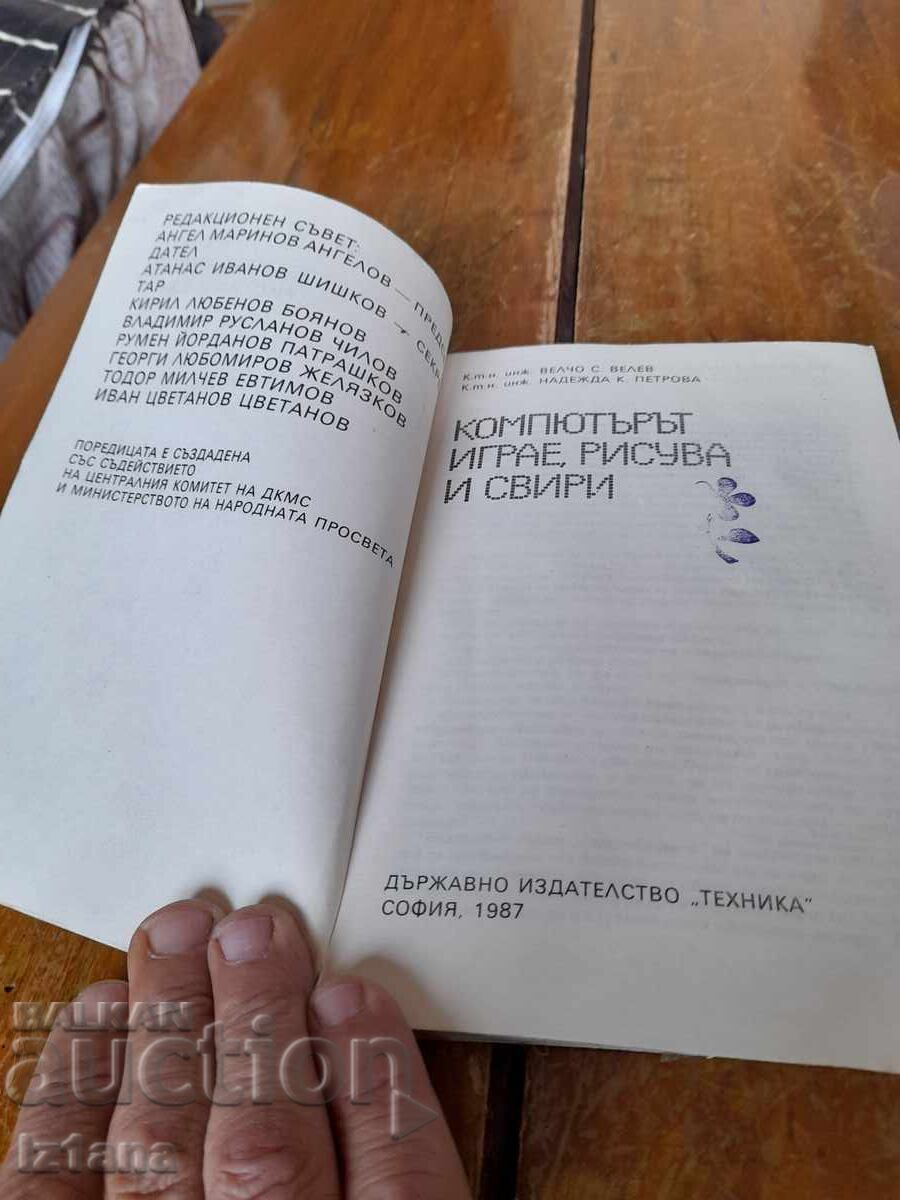 РЕДАКЦИОНЕН СЪВЕТ:
АНГЕЛ МАРИНОВ АНГЕЛОВ — ПРЕДС
ДАТЕЛ
АТАНАС ИВАНОВ ШИШКОВ — СЕКР
ТАР
КИРИЛ ЛЮБЕНОВ БОЯНОВ
ВЛАДИМИР РУСЛАНОВ ЧИЛОВ
РУМЕН ЙОРДАНОВ ПАТРАШКОВ
ГЕОРГИ ЛЮБОМИРОВ ЖЕЛЯЗКОВ
ТОДОР МИЛЧЕВ ЕВТИМОВ
ИВАН ЦВЕТАНОВ ЦВЕТАНОВ
ПОРЕДИЦАТА Е СЪЗДАДЕНА
СЪС СЪДЕЙСТВИЕТО
НА ЦЕНТРАЛНИЯ КОМИТЕТ НА ДКМС
И МИНИСТЕРСТВОТО НА НАРОДНАТА ПРОСВЕТА
К.т.н. инж. ВЕЛЧО С. ВЕЛЕВ
К.т.н. инж. НАДЕЖДА К. ПЕТРОВА
КОМПЮТЪРЪТ
ИГРАЕ, РИСУВА
И СВИРИ
ДЪРЖАВНО ИЗДАТЕЛСТВО „ТЕХНИКА"
СОФИЯ, 1987
BALKAN
auction
iz1ana